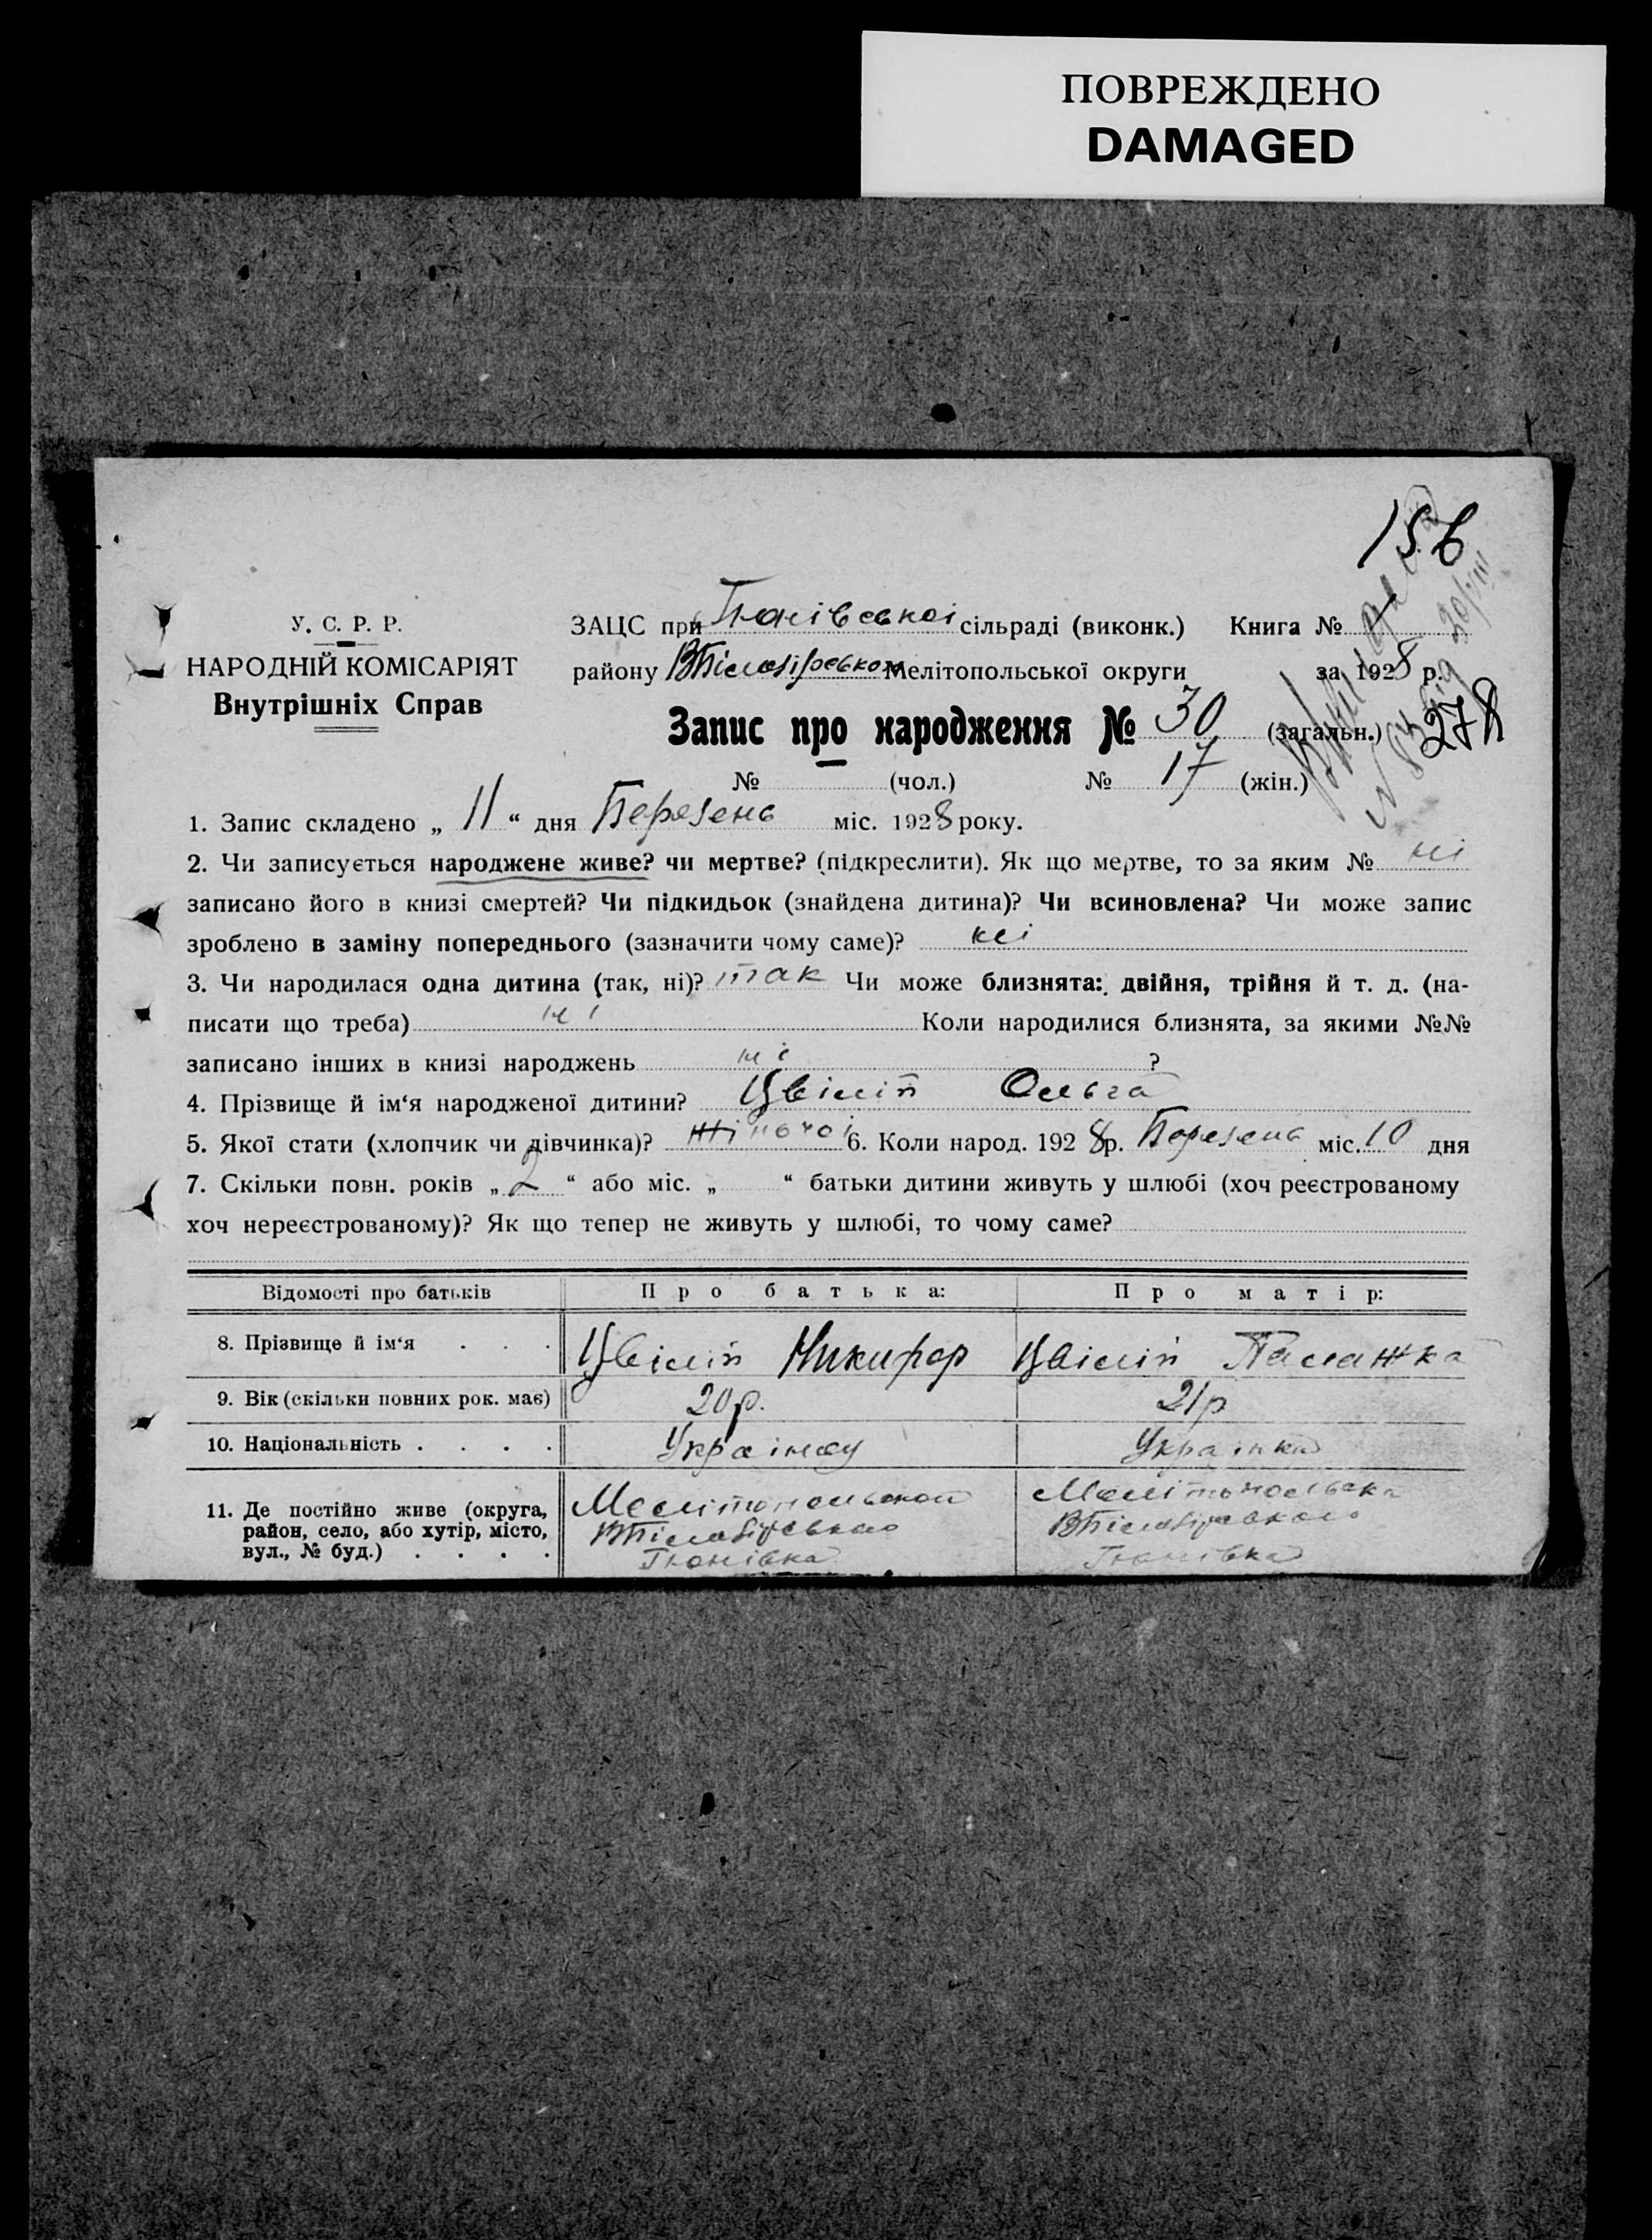 ПОВРЕЖДЕНО
DAMAGED
156
У. С. Р. Р.
НАРОДНІЙ КОМІСАРІЯТ
Внутрішніх Справ
ЗАЦС при сільраді (виконк.) Книга №
району Мелітопольської округи за 1928 р.
Запис про народження № 30 (загальн.) 278
№ (чол.) № 17 (жін.)
1. Запис складено „ 11 “ дня Березень міс. 1928 року.
2. Чи записується народжене живе? чи мертве? (підкреслити). Як що мертве, то за яким № ні
записано його в книзі смертей? Чи підкидьок (знайдена дитина)? Чи всиновлена? Чи може запис
зроблено в заміну попереднього (зазначити чому саме)? ні
3. Чи народилася одна дитина (так, ні)? так Чи може близнята: двійня, трійня й т. д. (на-
писати що треба) ні Коли народилися близнята, за якими №№
записано інших в книзі народжень ні ?
4. Прізвище й ім‘я народженої дитини? Цвілій Ольга
5. Якої стати (хлопчик чи дівчинка)? жіночоі 6. Коли народ. 1928 р. Березень міс. 10 дня
7. Скільки повн. років „ 2 “ або міс. „ “ батьки дитини живуть у шлюбі (хоч реєстрованому
хоч нереєстрованому)? Як що тепер не живуть у шлюбі, то чому саме?
Відомості про батьків Про батька: Про матір:
8. Прізвище й ім‘я . . . Цвілій Никифор Цвілій Палажка
9. Вік (скільки повних рок. має) 20р. 21р
10. Національність . . . . Украінец Украінка
11. Де постійно живе (округа,
район, село, або хутір, місто,
вул., № буд.) . . . .